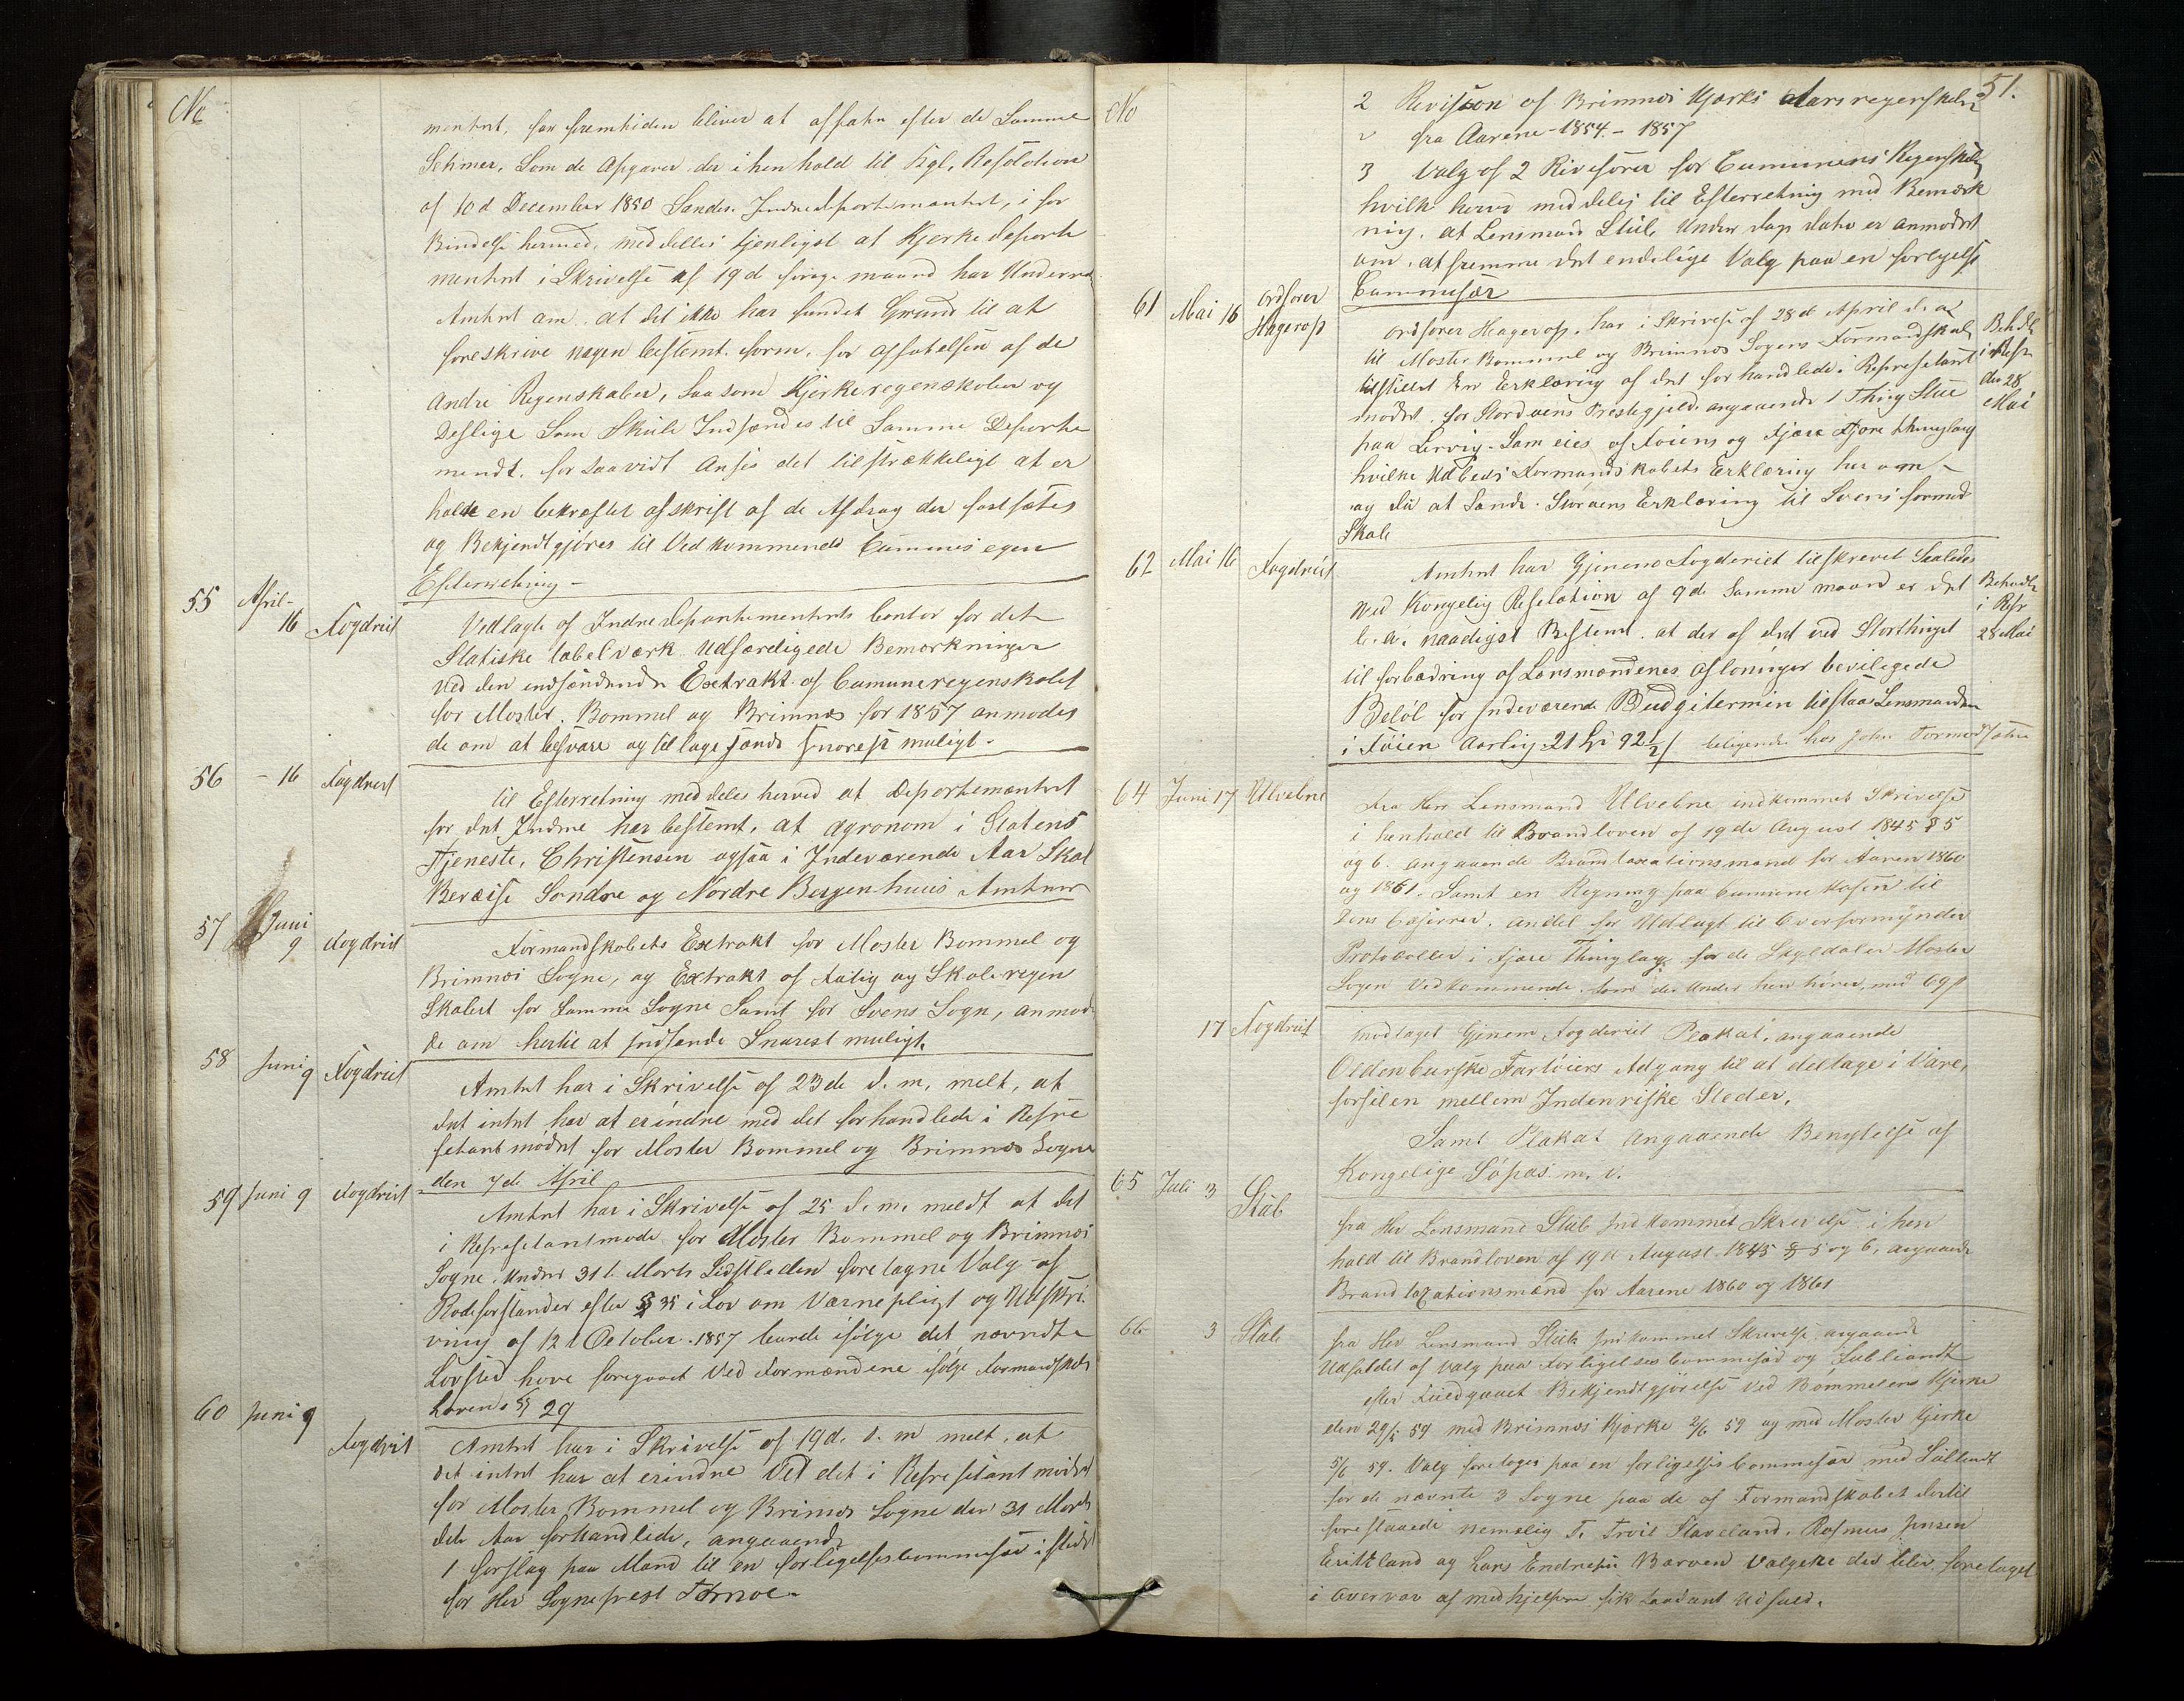 No
mentet, for fremtiden bliver at affatte efter de Samme
Schmer, Som de Opgaver, der i hen hold til Kgl. Resolotion
af 10d December 1850 Sendes Indredeportementet, i for
Bindelse hermed, meddelles tjenligst at Kjerkedeporte
mentet i Skrivelse af 19d forige maaned har Underret
Amtet om, at det ikke har fundet Grund til at
foreskrive nogen bestemt form, for affatelsen af de
Andre Regenskaber, saasom Kjerkeregenskaber og
Deslige Som Skule Indsændes til Samme Deporte
mendt. for saavidt Anses det tilstrækkeligt at er
holde en bekræftet afskrift af de Afdrag der fastsætes
og Bekjendtgjøres til Vedkommende Cummunes egen
Efterretning –
55 April- 16 Fogdriet
Vedlagte af Indredepartementets Contor for det
Statiske tabelværk Udfærdigede Bemærkninger
Ved den indsendende Extrakt af Comuneregenskabet
for Moster, Bommel og Brimnæs for 1857 anmodes
de om at besvare og tilbage sænde snarest muligt –
56 – 16 Fogdriet
til Efterretning meddeles herved at Deportementet
for det Indre har bestemt, at Agronom i Statens
Tjeneste, Christensen ogsaa i Indeværende Aar Skal
Bereise Sondre og Nordre Bergenhuus Amter
57 Juni 9 Fogdriet
Formandskabets Extrakt for Moster Bommel og
Brimnæs Sogne, og Extrakt af Fatig og Skoleregen
Skabet for Samme Sogne Samt for Svens Sogn, anmod
de om hertil at Indsende Snarest muligt,
58 Juni 9 Fogdriet
Amtet har i Skrivelse af 23de d. m. melt, at
det intet har at erindre med det forhandlede i Repre
setantmødet for Moster Bommel og Brimnæs Sogne
den 7de April
59 Juni 9 Fogdriet
Amtet har i Skrivelse af 25 d. m. meldt at det
i Represetantmøde for Moster Bommel og Brimnæs
Sogne. Under 31t Marts Sidstleden foretagne Valg af
Rodeforstander efter § 35 i Lov om Værnepligt og Udskri
vning af 12t October 1857 burde ifølge det nævndte
Lovsted have foregaaet Ved Formændene ifølge Formandskabs
Lovens § 29
60 Juni 9 Fogdriet
Amtet har i Skrivelse af 19d. d. m melt, at
det intet har at erindre Ved det i Represetantmødet
for Moster Bommel og Brimnæs Sogne den 31 Marts
dete Aar forhandlede, angaaende
1 forslag paa Mand til en forligelsescommisær i stedet
for Her Sogneprest
No 51.
2 Revision af Brimnæs Kjærks Aarsregenskaber
fra Aarene 1854 – 1857
3 Valg af 2 Rivisorer for Cumunens Regenskab
hvilke herved meddeles til Efterretning med Bemærk
ning, at Lensmand Stüb Under Dags dato er anmodet
om, at fremme det endelige Valg paa en forlgelse
Cummisær
61 Mai 16 Ordforer Hagerop
Ordforer Hagerop, har i Skrivelse af 28de April d. a
til Moster Bommel og Brimnæs Sogens Formandskab
tilstillet En Erklæring af det forhandlede i Represetant
mødet for Stordøens Prestegjeld angaaende 1 Thing Stue
paa Lervig Som eies af Føiens og Fjære Fjære thinglaug
hvilke Udbeds Formandskabets Erklæring her om –
og Da at Sende Støroens Erklæring til Svens formed
Skab
Behdl
i Repr
den 28
Mai
62 Mai 16 Fogdriet
Amtet har Gjenem Fogderiet tilskrevet Saaledes
Ved Kongelig Reselotion af 9de Samme maaned er det
b. a. naadigst Bestemt, at der af det ved Storthinget
til forbædring af Lænsmændenes afloninger bevilegede
Beløb for Indeværende Budgitermin tilstaaes Lensmanden
i Føien Aarlig 21 Sp 92½ / beligende hos John Formodsøhn
Behadle
i Repr
28 Mai
64 Juni 17 Ulvebne
Fra Her Lensmand Ulvebne indkommet Skrivelse
i henhold til Brandloven af 19de August 1845 § 5
og 6. angaaende Brandtaxationsmænd for Aaren 1860
og 1861. Samt en Regning paa Cumune Kasen til
dens Casserer, andel for Udlagt til Overformynder
Protocoller i Fjære Thinglag for de Skyldaler Moster
Sogen Vedkommende. Som der Under hen hører, med 69
17 Fogdriet
Modtaget Gjenem Fogderiet Plakat, angaaende
Oldenburske Fartøiers Adgang til at deltage i Vare,
forselen mellem Indenriske Steder.
Samt Plakat Angaaende Benytelse af
Kongelige Søpas m. v.
65 Juli 3 Stüb
fra Her Lensmand Stüb Indkommet Skrivelse i hen
hold til Brandloven af 19de August 1845 § 5 og 6, angaaende
Brandtaxationsmænd for Aarene 1860 og 1861
66 3 Stüb
fra Her Lensmand Stüb Indkommet Skrivelse, angaaende
Udfaldet af Valg paa Forligelsescommisær og Subliandt
efter Bekjendtgjørelse Ved Bømmelens Kjerke
den 29/5 59 med Brimnæs Kjærke 2/6 59 og med Moster Kjerke
5/6 59. Valg foretoges paa en forligelsescommisær med
for de nævnte 3 Sogne paa de af Formandskabet dertil
forestaaede nemelig T. Troil Staveland, Rasmus Jensen
Eritzland og Lars Endresen Børven Valgene der blev foretaget
i Overvær af medhjelpere fik saadant Udfald.